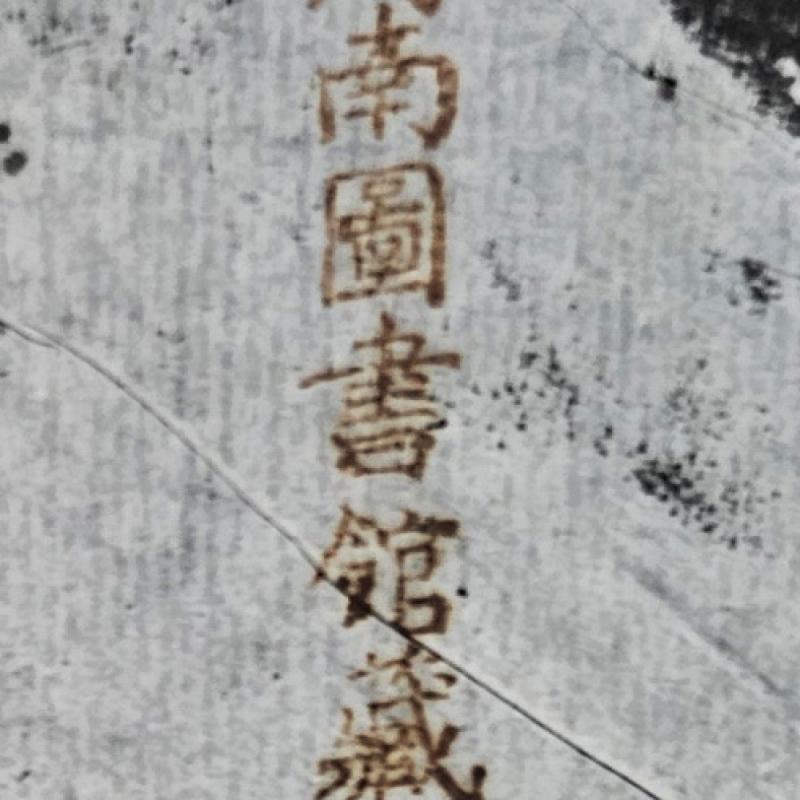 南圖書館藏